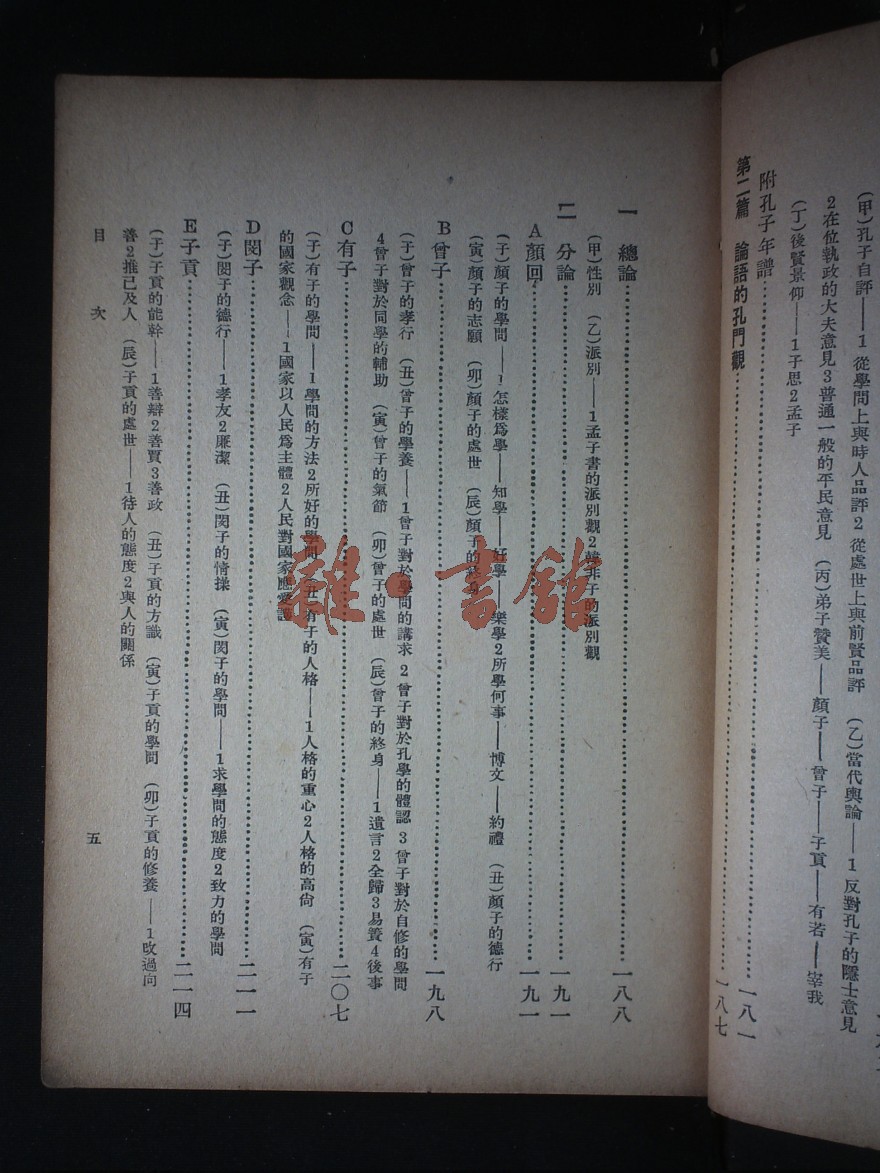 (甲)孔子自評——1 從學問上與時人品評2 從處世上與前賢品評 (乙)當代輿論——1 反對孔子的隱士意見
2在位執政的大夫意見3普通一般的平民意見 (丙)弟子贊美——顏子——曾子——子貢——有若——宰我
(丁)後賢景仰——1子思2孟子
附孔子年譜……一八一
第二篇 論語的孔門觀……一八七
一 總論……一八八
(甲)性別 (乙)派別——1孟子書的派別觀2韓非子的派別觀
二 分論……一九一
A顏回……一九一
(子)顏子的學問——1怎樣爲學——知學——好學——樂學2所學何事——博文——約禮 (丑)顏子的德行
(寅)顏子的志願 (卯)顏子的處世 (辰)顏子的
B曾子……一九八
(子)曾子的孝行 (丑)曾子的學養——1曾子對於學問的講求 2 曾子對於孔學的體認 3 曾子對於自修的學問
4曾子對於同學的輔助 (寅)曾子的氣節 (卯)曾子的處世 (辰)曾子的終身——1遺言2全歸3易簀4後事
C有子……二〇七
(子)有子的學問——1學問的方法2所好的學問 (丑)有子的人格——1人格的重心2人格的高尙 (寅)有子
的國家觀念——1國家以人民爲主體2人民對國家應愛護
D閔子……二一一
(子)閔子的德行——1孝友2廉潔 (丑)閔子的情操 (寅)閔子的學問——1求學問的態度2致力的學問
E子貢……二一四
(子)子貢的能幹——1善辯2善賈3善政 (丑)子貢的方識 (寅)子貢的學問 (卯)子貢的修養——1改過向
善2推己及人 (辰)子貢的處世——1待人的態度2與人的關係
目次
五
雜書館